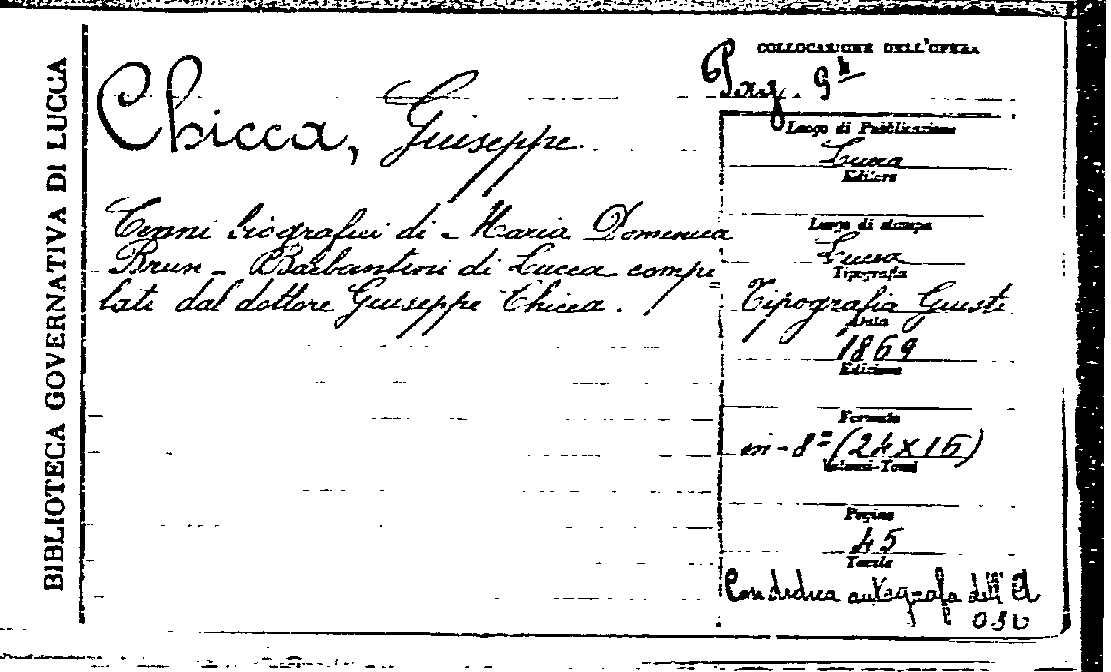 BIBLIOTECA GOVERNATIVA DI LUCCA
Chicca, Giuseppe
Cenni biografici di Maria Domenica
Brun - Barbantini di Lucca compi=
lati dal dottore Giuseppe Chicca.
COLLOCAZIONE DELL'OPERA
9
Luogo di Pubblicazione
Lucca
Editore
Luogo di stampa
Lucca
Tipografia
Tipografia Giusti
Data
1869
Edizione
Formato
in-8= (24x16)
Volumi-Tomi
Pagine
45
Tavole
Con dedica autografa dell'